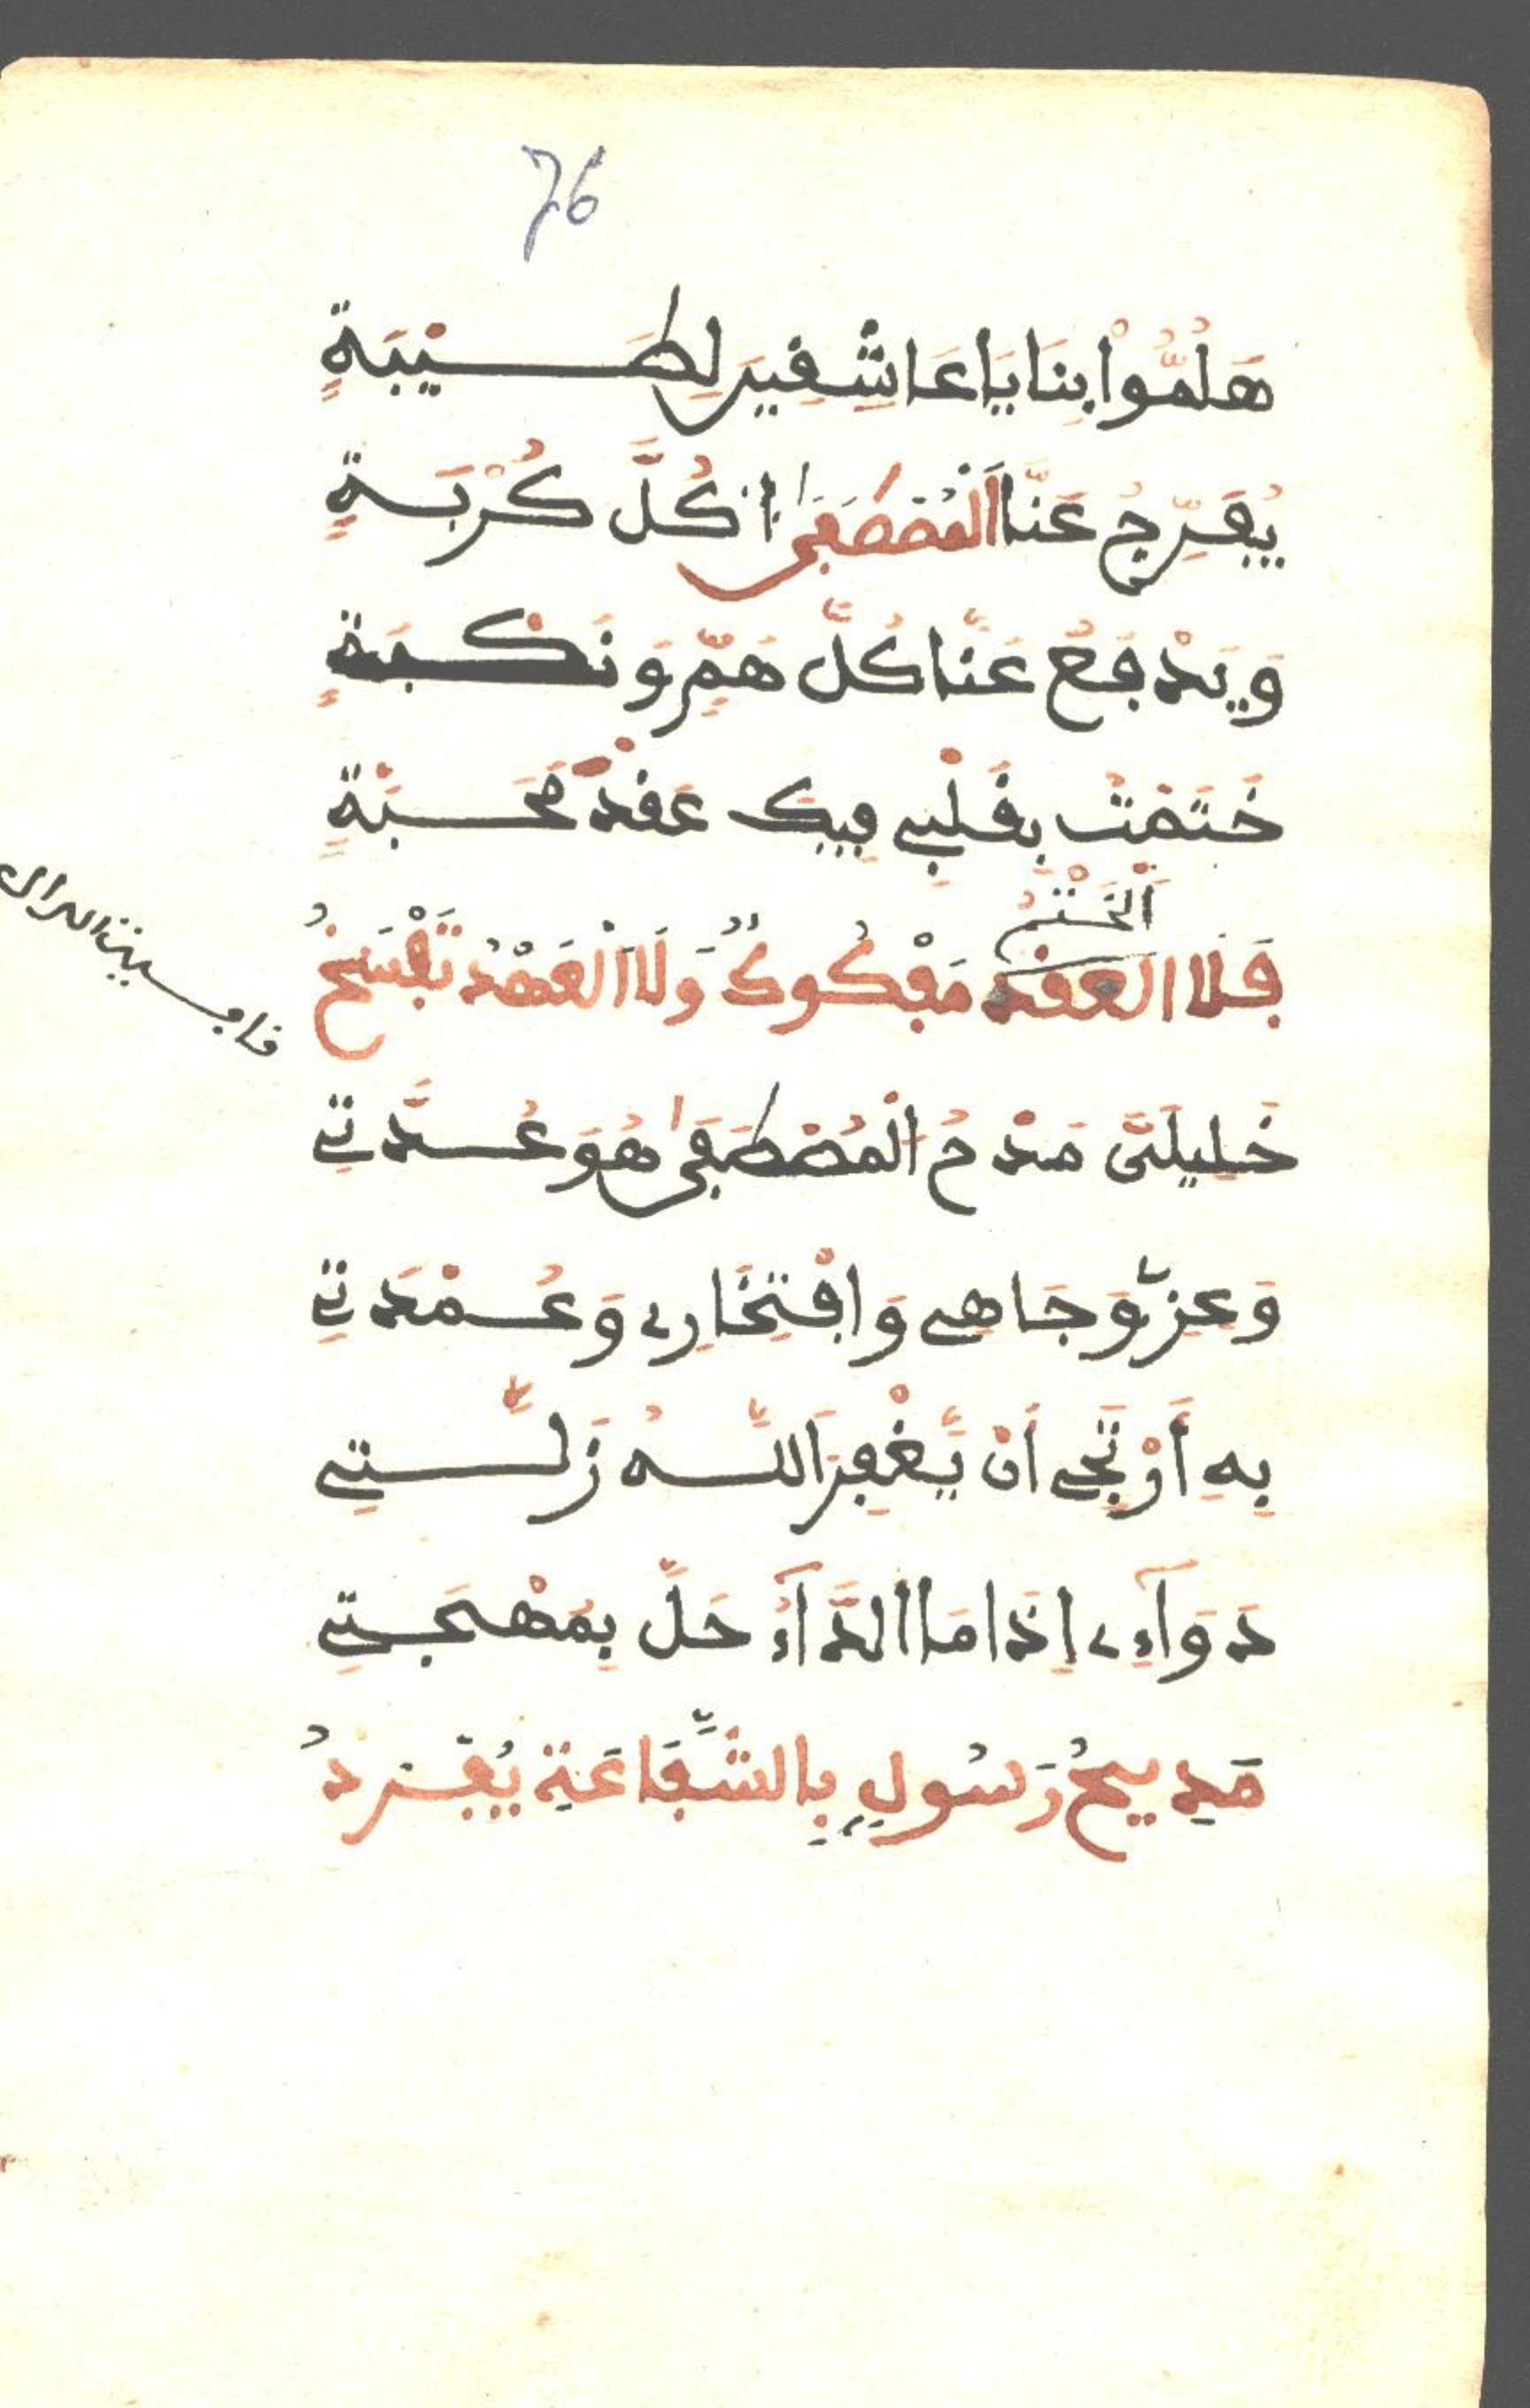 76
هَلُمُّواْ بِنَا يَا عَاشِقِينَ لِطَيْبَةٍ
يُفَرِّجُ عَنَّا اَلْمُصْطَفَى كُلَّ كُرْبَةٍ
وَيَدْفَعُ عَنَّا كُلَّ هَمٍّ وَنَكْبَةٍ
خَتَمْتُ بِقَلْبِي فِيكَ عَقْدَ مَحَبَّةٍ
اَلْخَتْمُ
فَلَا العَقْدُ مَفْكُوكٌ وَلَا اَلْعَهْدُ يَفْسَخُ
خَلِيلَيَّ مَدْحُ الْمُصْطَفَى هُوَ عُدَّتِي
وَعِزِّي وَجَاهِي وَافْتِخَارِي وَعُمْدَتِي
بِهِ أَرْتَجِي أَنْ يَّغْفِرَ اَللَّهُ زَلَّتِي
دَوَآءِي إِذَا مَا الدَّآءُ حَلَّ بِمُهْجَتِي
مَدِيحُ رَسُولٍ بِالشَّفَاعَةِ يُفْرَدُ